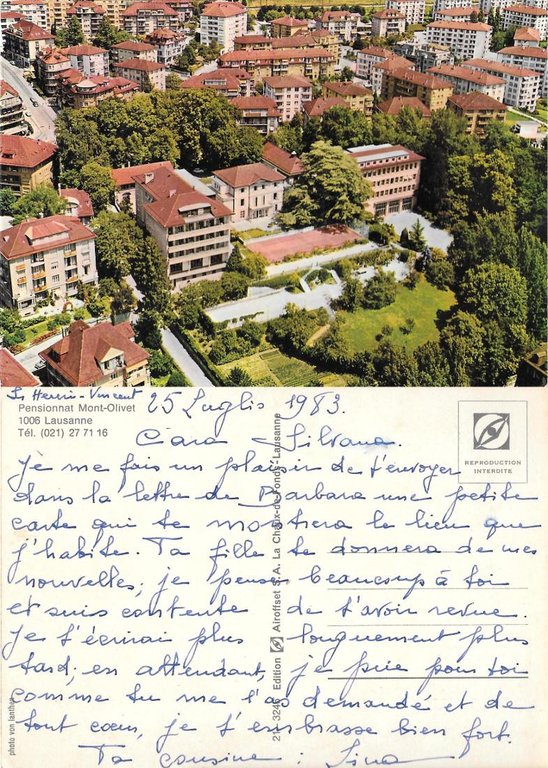 Sr Henris-Vincent
Pensionnat Mont-Olivet
1006 Lausanne
Tél. (021) 27 71 16
25 Luglio 1983.
REPRODUCTION
INTERDITE
Cara Silvana.
Je me fais un plaisir de t'envoyer
dans la lettre de Barbara une petite
carte qui te montrera le lieu que
j'habite. Ta fille te donnera de mes
nouvelles; je pense beaucoup à toi
et suis contente de t'avoir revue.
Je t'écrirai plus longuement plus
tard; en attendant, je prie pour toi
comme tu me l'as demandé et de
tout cœur, je t'embrasse bien fort.
Ta cousine: Lina
Edition Airoffset S.A. La Chaux-de-Fonds-Lausanne
photo von